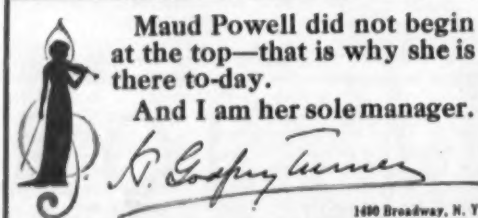 Maud Powell did not begin
at the top—that is why she is
there to-day.
And I am her sole manager.
H. Godfrey Turner
1400 Broadway, N. Y